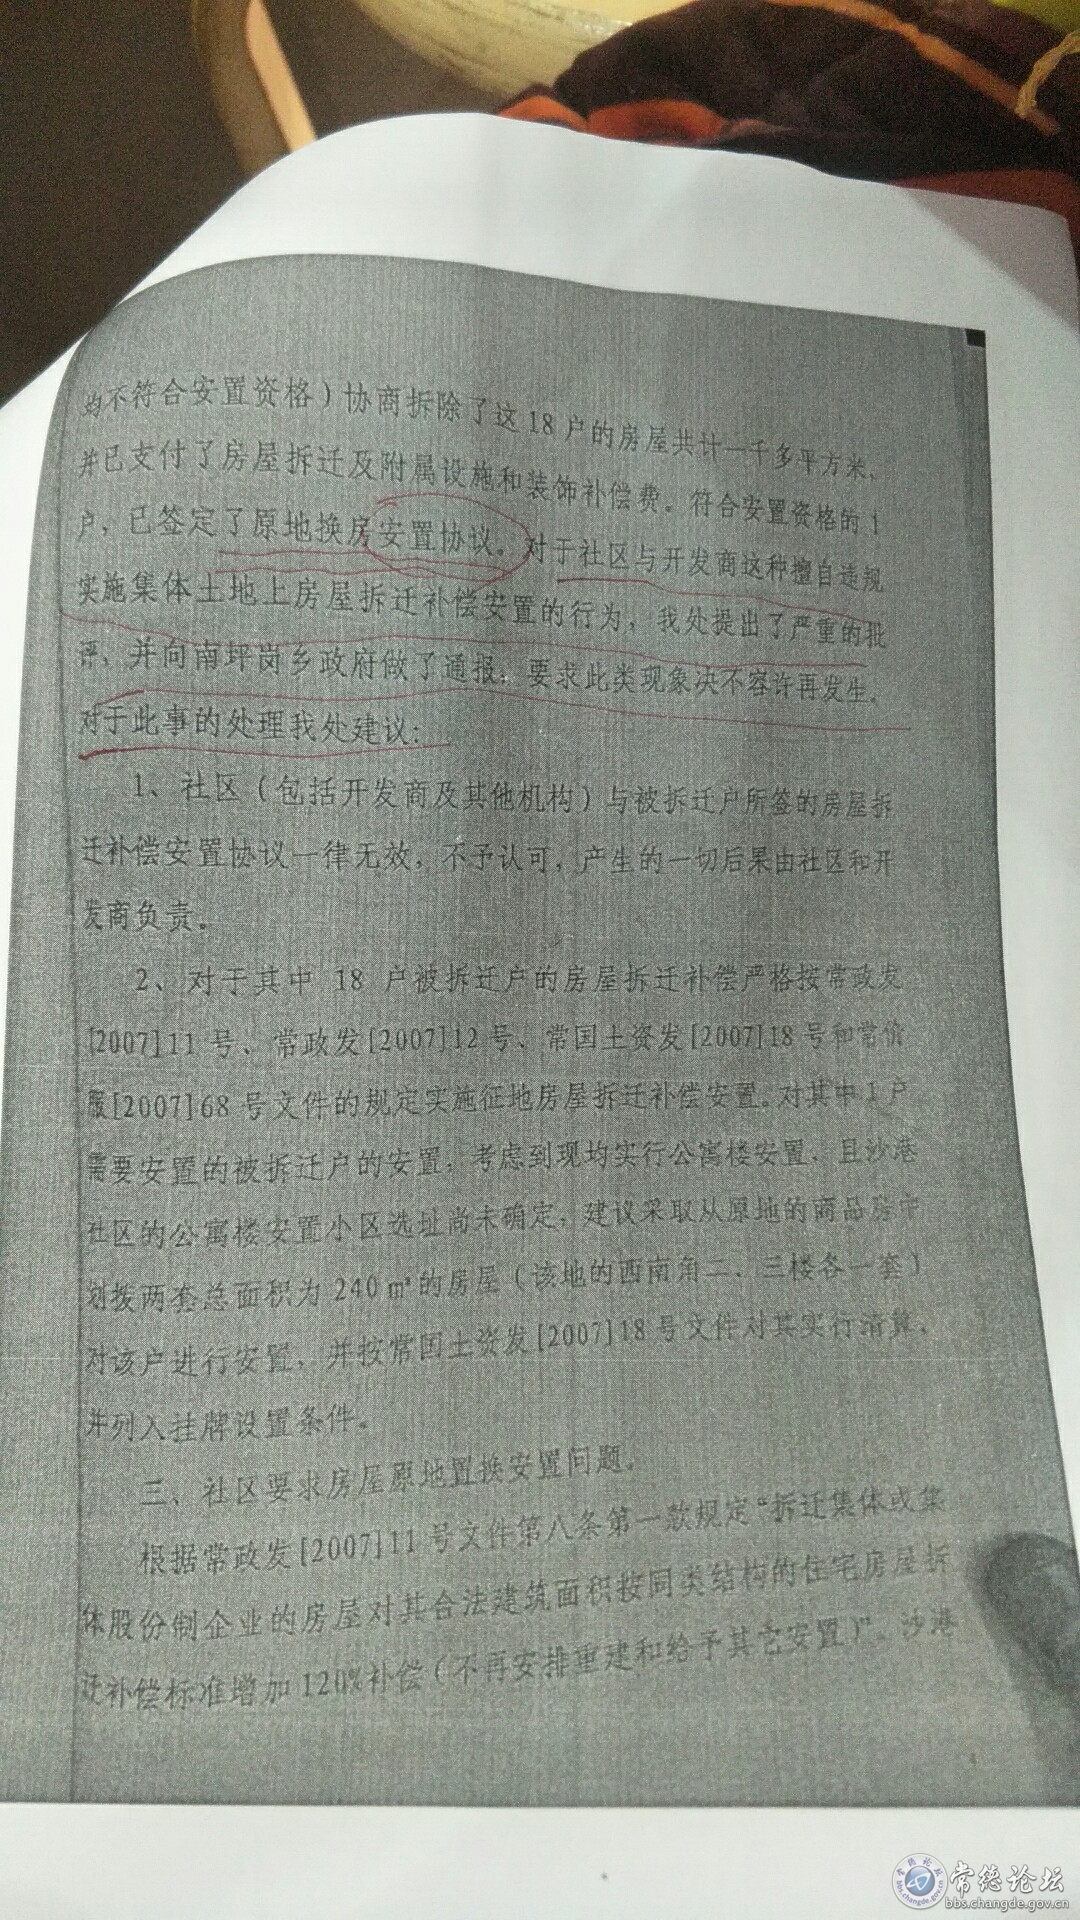 均不符合安置资格)协商拆除了这18户的房屋共计一千多平方米,
并已支付了房屋拆迁及附属设施和装饰补偿费。符合安置资格的1
户,已签定了原地换房安置协议。对于社区与开发商这种擅自违规
实施集体土地上房屋拆迁补偿安置的行为,我处提出了严重的批
评,并向南坪岗乡政府做了通报,要求此类现象决不容许再发生。
对于此事的处理我处建议:
1、社区(包括开发商及其他机构)与被拆迁户所签的房屋拆
迁补偿安置协议一律无效,不予认可,产生的一切后果由社区和开
发商负责。
2、对于其中 18 户被拆迁户的房屋拆迁补偿严格按常政发
[2007]11号、常政发[2007]12号、常国土资发[2007]18号和常价
服[2007]68号文件的规定实施征地房屋拆迁补偿安置。对其中1户
需要安置的被拆迁户的安置,考虑到现均实行公寓楼安置,且沙港
社区的公寓楼安置小区选址尚未确定,建议采取从原地的商品房中
划拨两套总面积为240㎡的房屋(该地的西南角二、三楼各一套)
对该户进行安置,并按常国土资发[2007]18号文件对其实行清算,
并列入挂牌设置条件。
三、社区要求房屋原地置换安置问题。
根据常政发[2007]11号文件第八条第一款规定“拆迁集体或集
体股份制企业的房屋对其合法建筑面积按同类结构的住宅房屋拆
迁补偿标准增加120%补偿(不再安排重建和给予其它安置)”。沙港
常德论坛
bbs.changde.gov.cn